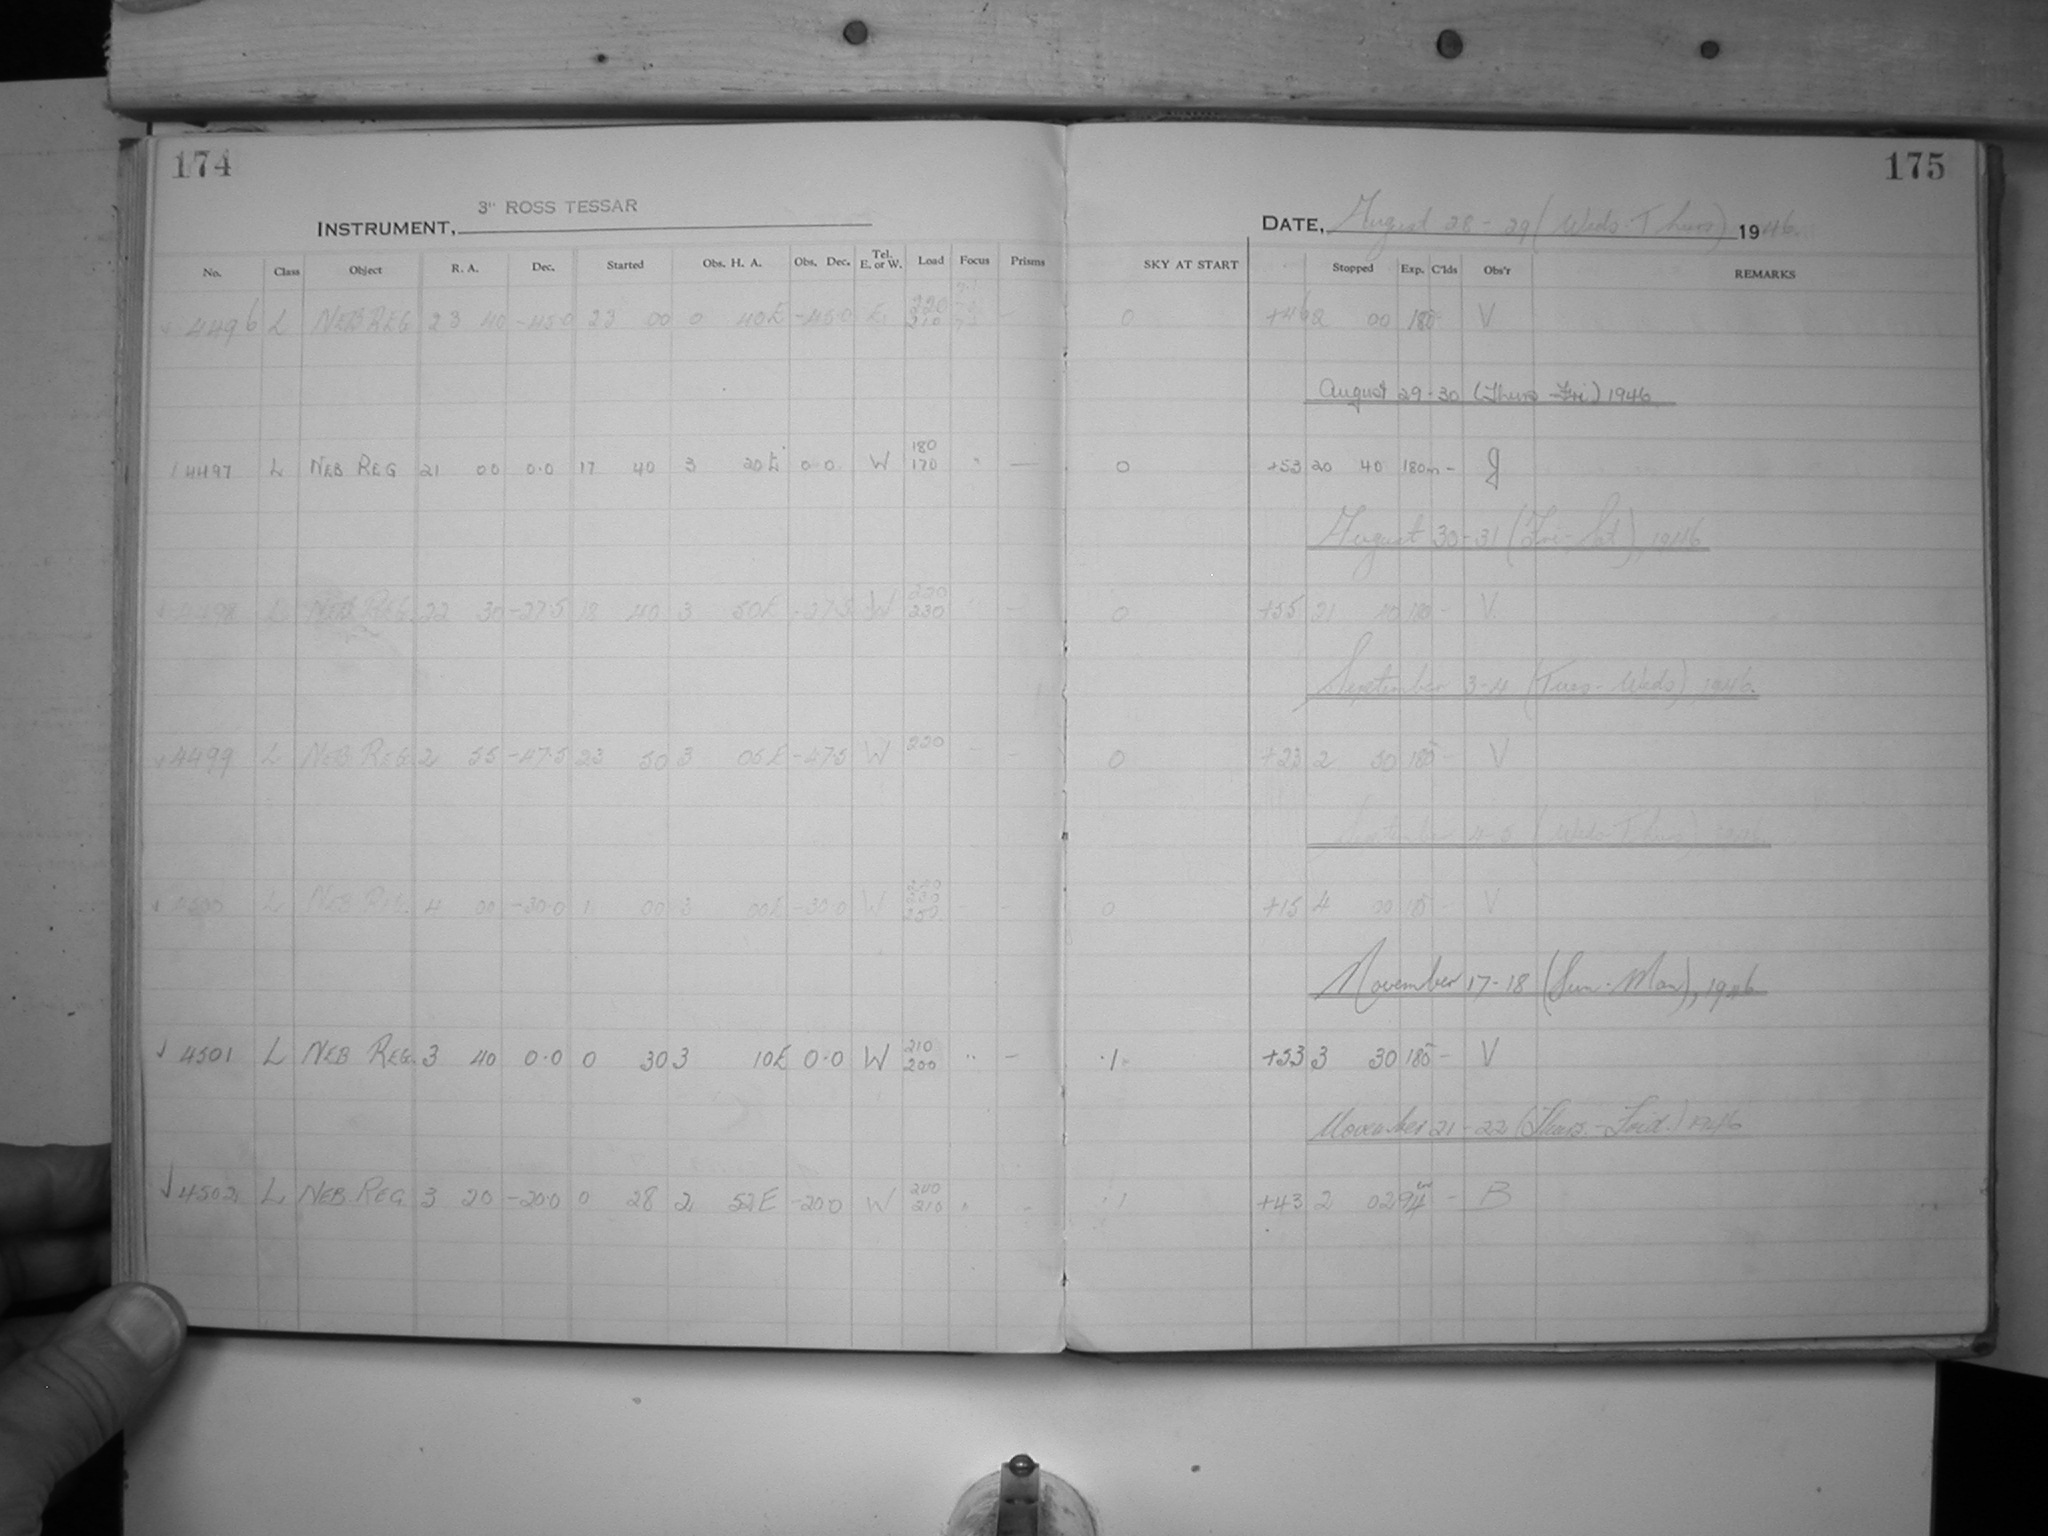 174
175
INSTRUMENT, 3" ROSS TESSAR
DATE, August 28-29 (Weds-Thurs) 1946.
No. Class Object R. A. Dec. Started Obs. H. A. Obs. Dec. Tel. E. or W. Load Focus Prisms SKY AT START Stopped Exp. C'lds Obs'r REMARKS
4496 L NEB REG 23 40 -45.0 23 00 0 40E -45.0 E 220 210 — 0 +46 2 00 180 V
August 29-30 (Thurs-Fri) 1946
4497 L NEB REG 21 00 0.0 17 40 3 20E 0.0 W 180 170 " — 0 +53 20 40 180m - J
August 30-31 (Fri-Sat), 1946
4498 L NEB REG 22 30 -27.5 18 40 3 50E -27.5 W 220 230 — 0 +55 21 40 180 - V
September 3-4 (Tues-Weds), 1946.
4499 L NEB REG 2 55 -47.5 23 50 3 05E -47.5 W 220 - - 0 +23 2 50 180 - V
September 4-5 (Weds-Thurs) 1946
4500 L NEB REG. 4 00 -30.0 1 00 3 00E -30.0 W 230 250 - - 0 +15 4 00 180 - V
November 17-18 (Sun-Mon), 1946
√ 4501 L NEB REG. 3 40 0.0 0 30 3 10E 0.0 W 210 200 " - .1 +53 3 30 180 - V
November 21-22 (Thurs.-Frid.) 1946
√ 4502 L NEB REG 3 20 -20.0 0 28 2 52E -20.0 W 200 210 " - .1 +43 2 02 94m - B